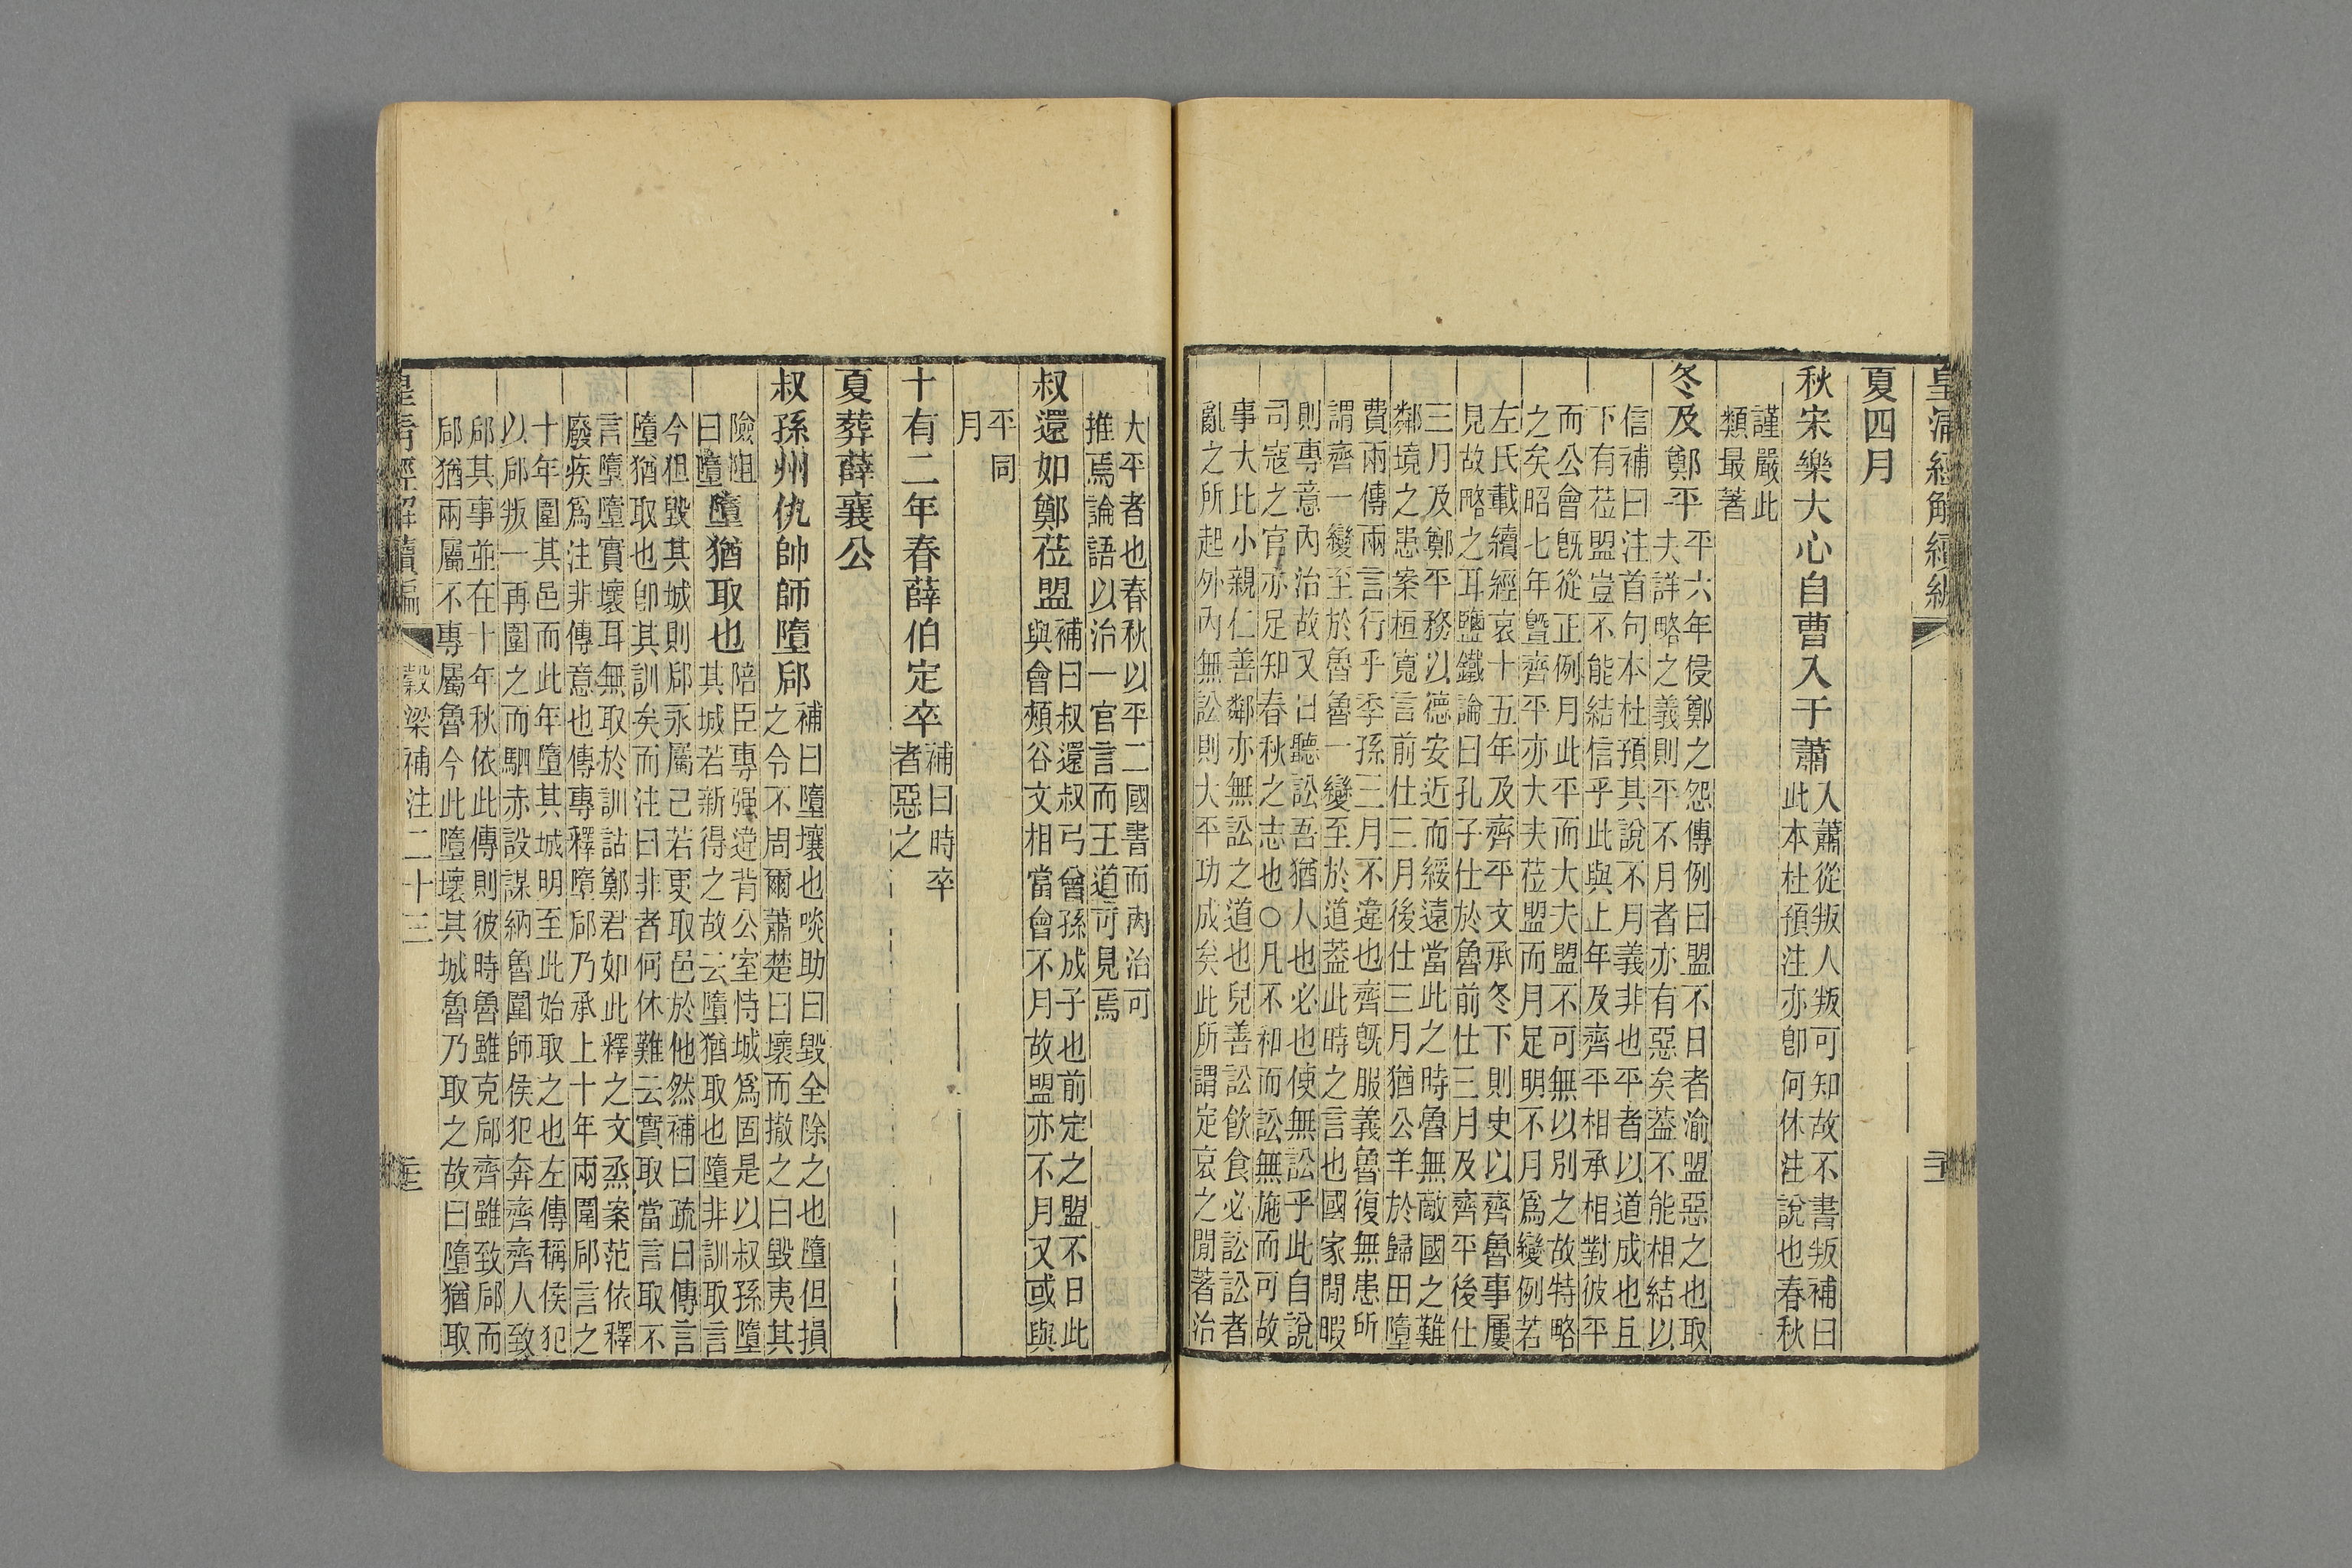 皇清經解續編
夏四月
秋宋樂大心自曹入于蕭入蕭從叛人叛可知故不書叛補曰
此本杜預注亦卽何休注說也春秋
謹嚴此
類最著
冬及鄭平平六年侵鄭之怨傳例曰盟不日者渝盟惡之也取
夫詳略之義則平不月者亦有惡矣蓋不能相結以
信補曰注首句本杜預其說不月義非也平者以道成也且
下有莅盟豈不能結信乎此與上年及齊平相承相對彼平
而公會旣從正例月此平而大夫盟不可無以別之故特略
之矣昭七年曁齊平亦大夫莅盟而月足明不月爲變例若
左氏載續經哀十五年及齊平文承冬下則史以齊魯事屢
見故略之耳鹽鐵論曰孔子仕於魯前仕三月及齊平後仕
三月及鄭平務以德安近而綏遠當此之時魯無敵國之難
鄰境之患案桓寬言前仕三月後仕三月猶公羊於歸田墮
費兩傳兩言行乎季孫三月不違也齊旣服義魯復無患所
謂齊一變至於魯魯一變至於道蓋此時之言也國家閒暇
則專意內治故又曰聽訟吾猶人也必也使無訟乎此自說
司寇之官亦足知春秋之志也○凡不和而訟無施而可故
事大比小親仁善鄰亦無訟之道也兒善訟飲食必訟訟者
亂之所起外內無訟則大平功成矣此所謂定哀之閒著治
大平者也春秋以平二國書而內治可
推焉論語以治一官言而王道可見焉
叔還如鄭莅盟補曰叔還叔弓曾孫成子也前定之盟不日此
與會頰谷文相當會不月故盟亦不月又或與
平同
月
十有二年春薛伯定卒補曰時卒
者惡之
夏葬薛襄公
叔孫州仇帥師墮郈補曰墮壞也啖助曰毀全除之也墮但損
之令不周爾蕭楚曰壞而撤之曰毀夷其
險阻
曰墮墮猶取也陪臣專强違背公室恃城爲固是以叔孫墮
其城若新得之故云墮猶取也墮非訓取言
今但毀其城則郈永屬己若更取邑於他然補曰疏曰傳言
墮猶取也卽其訓矣而注曰非者何休難云實取當言取不
言墮墮實壞耳無取於訓詁鄭君如此釋之文烝案范依釋
廢疾爲注非傳意也傳專釋墮郈乃承上十年兩圍郈言之
十年圍其邑而此年墮其城明至此始取之也左傳稱侯犯
以郈叛一再圍之而駟赤設謀納魯圍師侯犯奔齊齊人致
郈其事並在十年秋依此傳則彼時魯雖克郈齊雖致郈而
郈猶兩屬不專屬魯今此墮壞其城魯乃取之故曰墮猶取
皇清經解續編
穀梁補注二十三